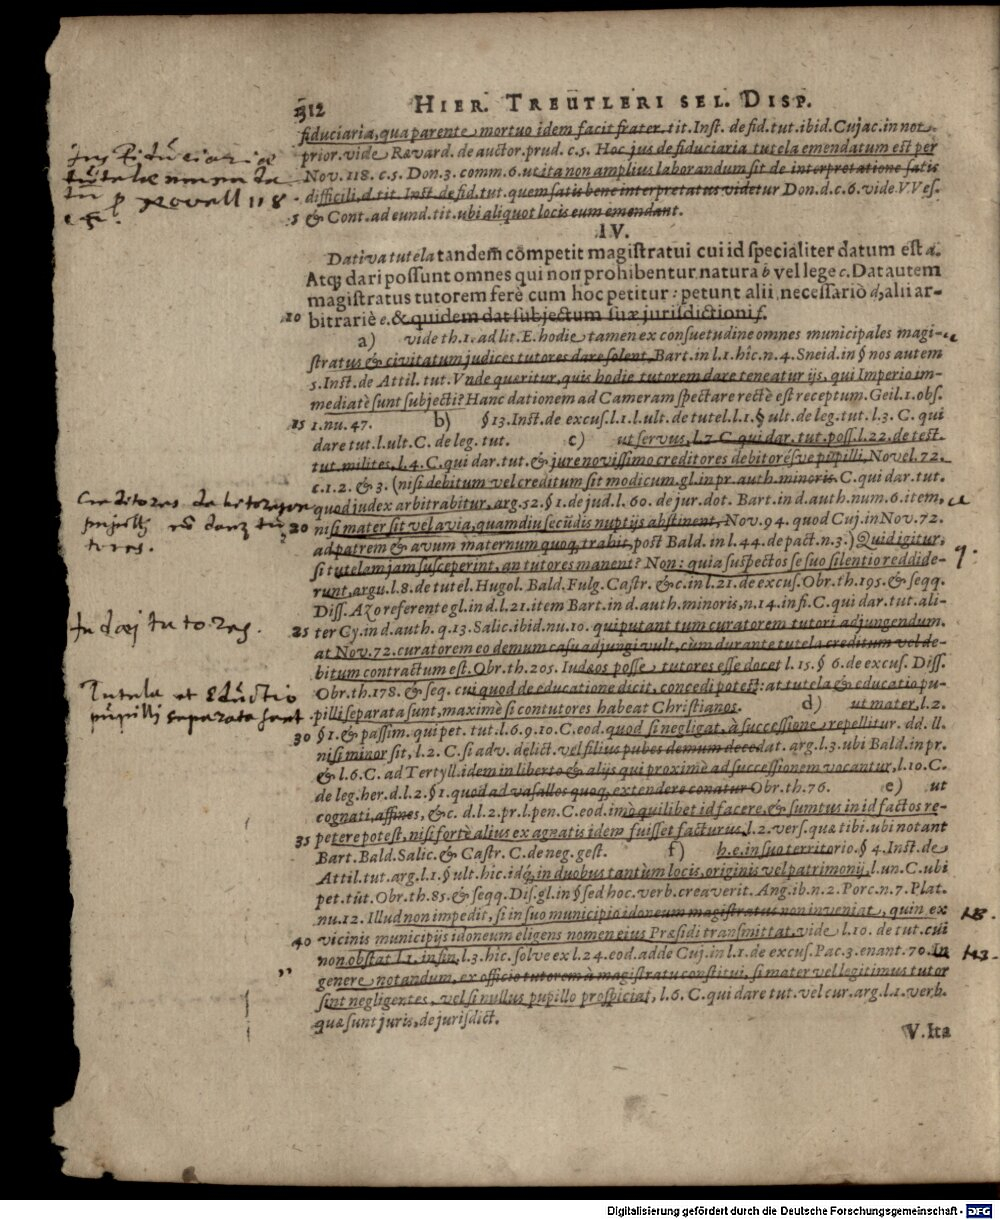 312 HIER. TREUTLERI SEL. DISP.
fiduciaria, qua parente mortuo idem facit frater tit. Inst. de fid. tut. ibid. Cujac. in not.
prior. vide Ravard. de auctor. prud. c. 5. Hoc jus de fiduciaria tutela emendatum est per
Nov. 118. c. 5. Don. 3. comm. 6. ut ita non amplius laborandum sit de interpretatione satis
difficili, d. tit. Inst. de fid. tut. quem satis bene interpretatus videtur Don. d. c. 6. vide V Ves.
5 & Cont. ad eund. tit. ubi aliquot locis eum emendant.
IV.
Dativa tutela tandem cõmpetit magistratui cui id specialiter datum est a.
Atq; dari possunt omnes qui non prohibentur natura b vel lege c. Dat autem
magistratus tutorem ferè cum hoc petitur: petunt alii necessariò d, alii ar-
10 bitrariè e. & quidem dat subjectum suæ jurisdictioni f.
a) vide th. 1. ad lit. E. hodie tamen ex consuetudine omnes municipales magi-
stratus & civitatum judices tutores dare solent, Bart. in l. 1. hîc. n. 4. Sneid. in § nos autem
5. Inst. de Attil. tut. Vnde quæritur, quis hodie tutorem dare teneatur ijs, qui Imperio im-
mediatè sunt subjecti? Hanc dationem ad Cameram spectare rectè est receptum. Geil. 1. obs.
15 1. nu. 47. b) § 13. Inst. de excus. l. 1. l. ult. de tutel. l. 1. § ult. de leg. tut. l. 3. C. qui
dare tut. l. ult. C. de leg. tut. c) ut servus, l. 7. C. qui dar. tut. poss. l. 22. de test.
tut. milites, l. 4. C. qui dar. tut. & jure novissimo creditores debitorésve pupilli, Novel. 72.
c. 1. 2. & 3. (nisi debitum vel creditum sit modicum. gl. in pr. auth. minoris C. qui dar. tut.
quod judex arbitrabitur, arg. 52. § 1. de jud. l. 60. de jur. dot. Bart. in d. auth. num. 6. item,
20 nisi mater sit vel avia, quamdiu secũdis nuptijs abstinent, Nov. 94. quod Cuj. in Nov. 72.
ad patrem & avum maternum quoq, trahit, post Bald. in l. 44. de pact. n. 3.) Quid igitur,
si tutelam jam susceperint, an tutores manent? Non: quia suspectos se suo silentio reddide-
runt, argu. l. 8. de tutel. Hugol. Bald. Fulg. Castr. & c. in l. 21. de excus. Obr. th. 195. & seqq.
Diss. Azo referente gl. in d. l. 21. item Bart. in d. auth. minoris, n. 14. in fi. C. qui dar. tut. ali-
25 ter Cy. in d. auth. q. 13. Salic. ibid. nu. 10. qui putant tum curatorem tutori adjungendum.
at Nov. 72. curatorem eo demum casu adjungi vult, cùm durante tutela creditum vel de-
bitum contractum est. Obr. th. 205. Iudæos posse tutores esse docet l. 15. § 6. de excus. Diss.
Obr. th. 178. & seq. cui quod de educatione dicit, concedi potest: at tutela & educatio pu-
pilli separata sunt, maximè si contutores habeat Christianos. d) ut mater, l. 2.
30 § 1. & passim. qui pet. tut. l. 6. 9. 10. C. eod. quod si negligat, à successione repellitur. dd. ll.
nisi minor sit, l. 2. C. si adv. delict. vel filius pubes demum decedat. arg. l. 3. ubi Bald. in pr.
& l. 6. C. ad Tertyll. idem in liberto & alijs qui proximè ad successionem vocantur, l. 10. C.
de leg. her. d. l. 2. § 1. quod ad vasallos quoq, extendere conatur Obr. th. 76. e) ut
cognati, affines, & c. d. l. 2. pr. l. pen. C. eod. imò quilibet id facere, & sumtus in id factos re-
35 petere potest, nisi fortè alius ex agnatis idem fuisset facturus, l. 2. vers. quæ tibi. ubi notant
Bart. Bald. Salic. & Castr. C. de neg. gest. f) h. e. in suo territorio. § 4. Inst. de
Attil. tut. arg. l. 1. § ult. hic. idq́, in duobus tantùm locis, originis vel patrimonij, l. un. C. ubi
pet. tut. Obr. th. 85. & seqq. Dis. gl. in § sed hoc. verb. creaverit. Ang. ib. n. 2. Porc. n. 7. Plat.
nu. 12. Illud non impedit, si in suo municipio idoneum magistratus non inveniat, quin ex
40 vicinis municipijs idoneum eligens nomen eius Præsidi transmittat, vide l. 10. de tut. cui
non obstat l. 1. in fin. l. 3. hic. solve ex l. 24. eod. adde Cuj. in l. 1. de excus. Pac. 3. enant. 70. In
genere notandum, ex officio tutorem à magistratu constitui, si mater vel legitimus tutor
sint negligentes, vel si nullus pupillo prospiciat, l. 6. C. qui dare tut. vel cur. arg. l. 1. verb.
quæ sunt juris, de jurisdict.
V. Ita
Jus Fiduciariæ
tutelæ emenda
tũ p Novell 118.
c 5.
Creditores debitoresque
pupilli nõ dant tu
tores.
Judæi tutores.
Tutela et Eductio
pupilli separata sunt
NB.
Digitalisierung gefördert durch die Deutsche Forschungsgemeinschaft - DFG